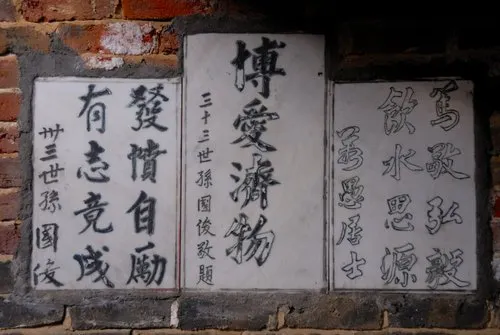 篤敬弘毅
飲水思源
愚居士
博愛濟物
三十三世孫國俊敬題
發憤自勵
有志竟成
卅三世孫國俊